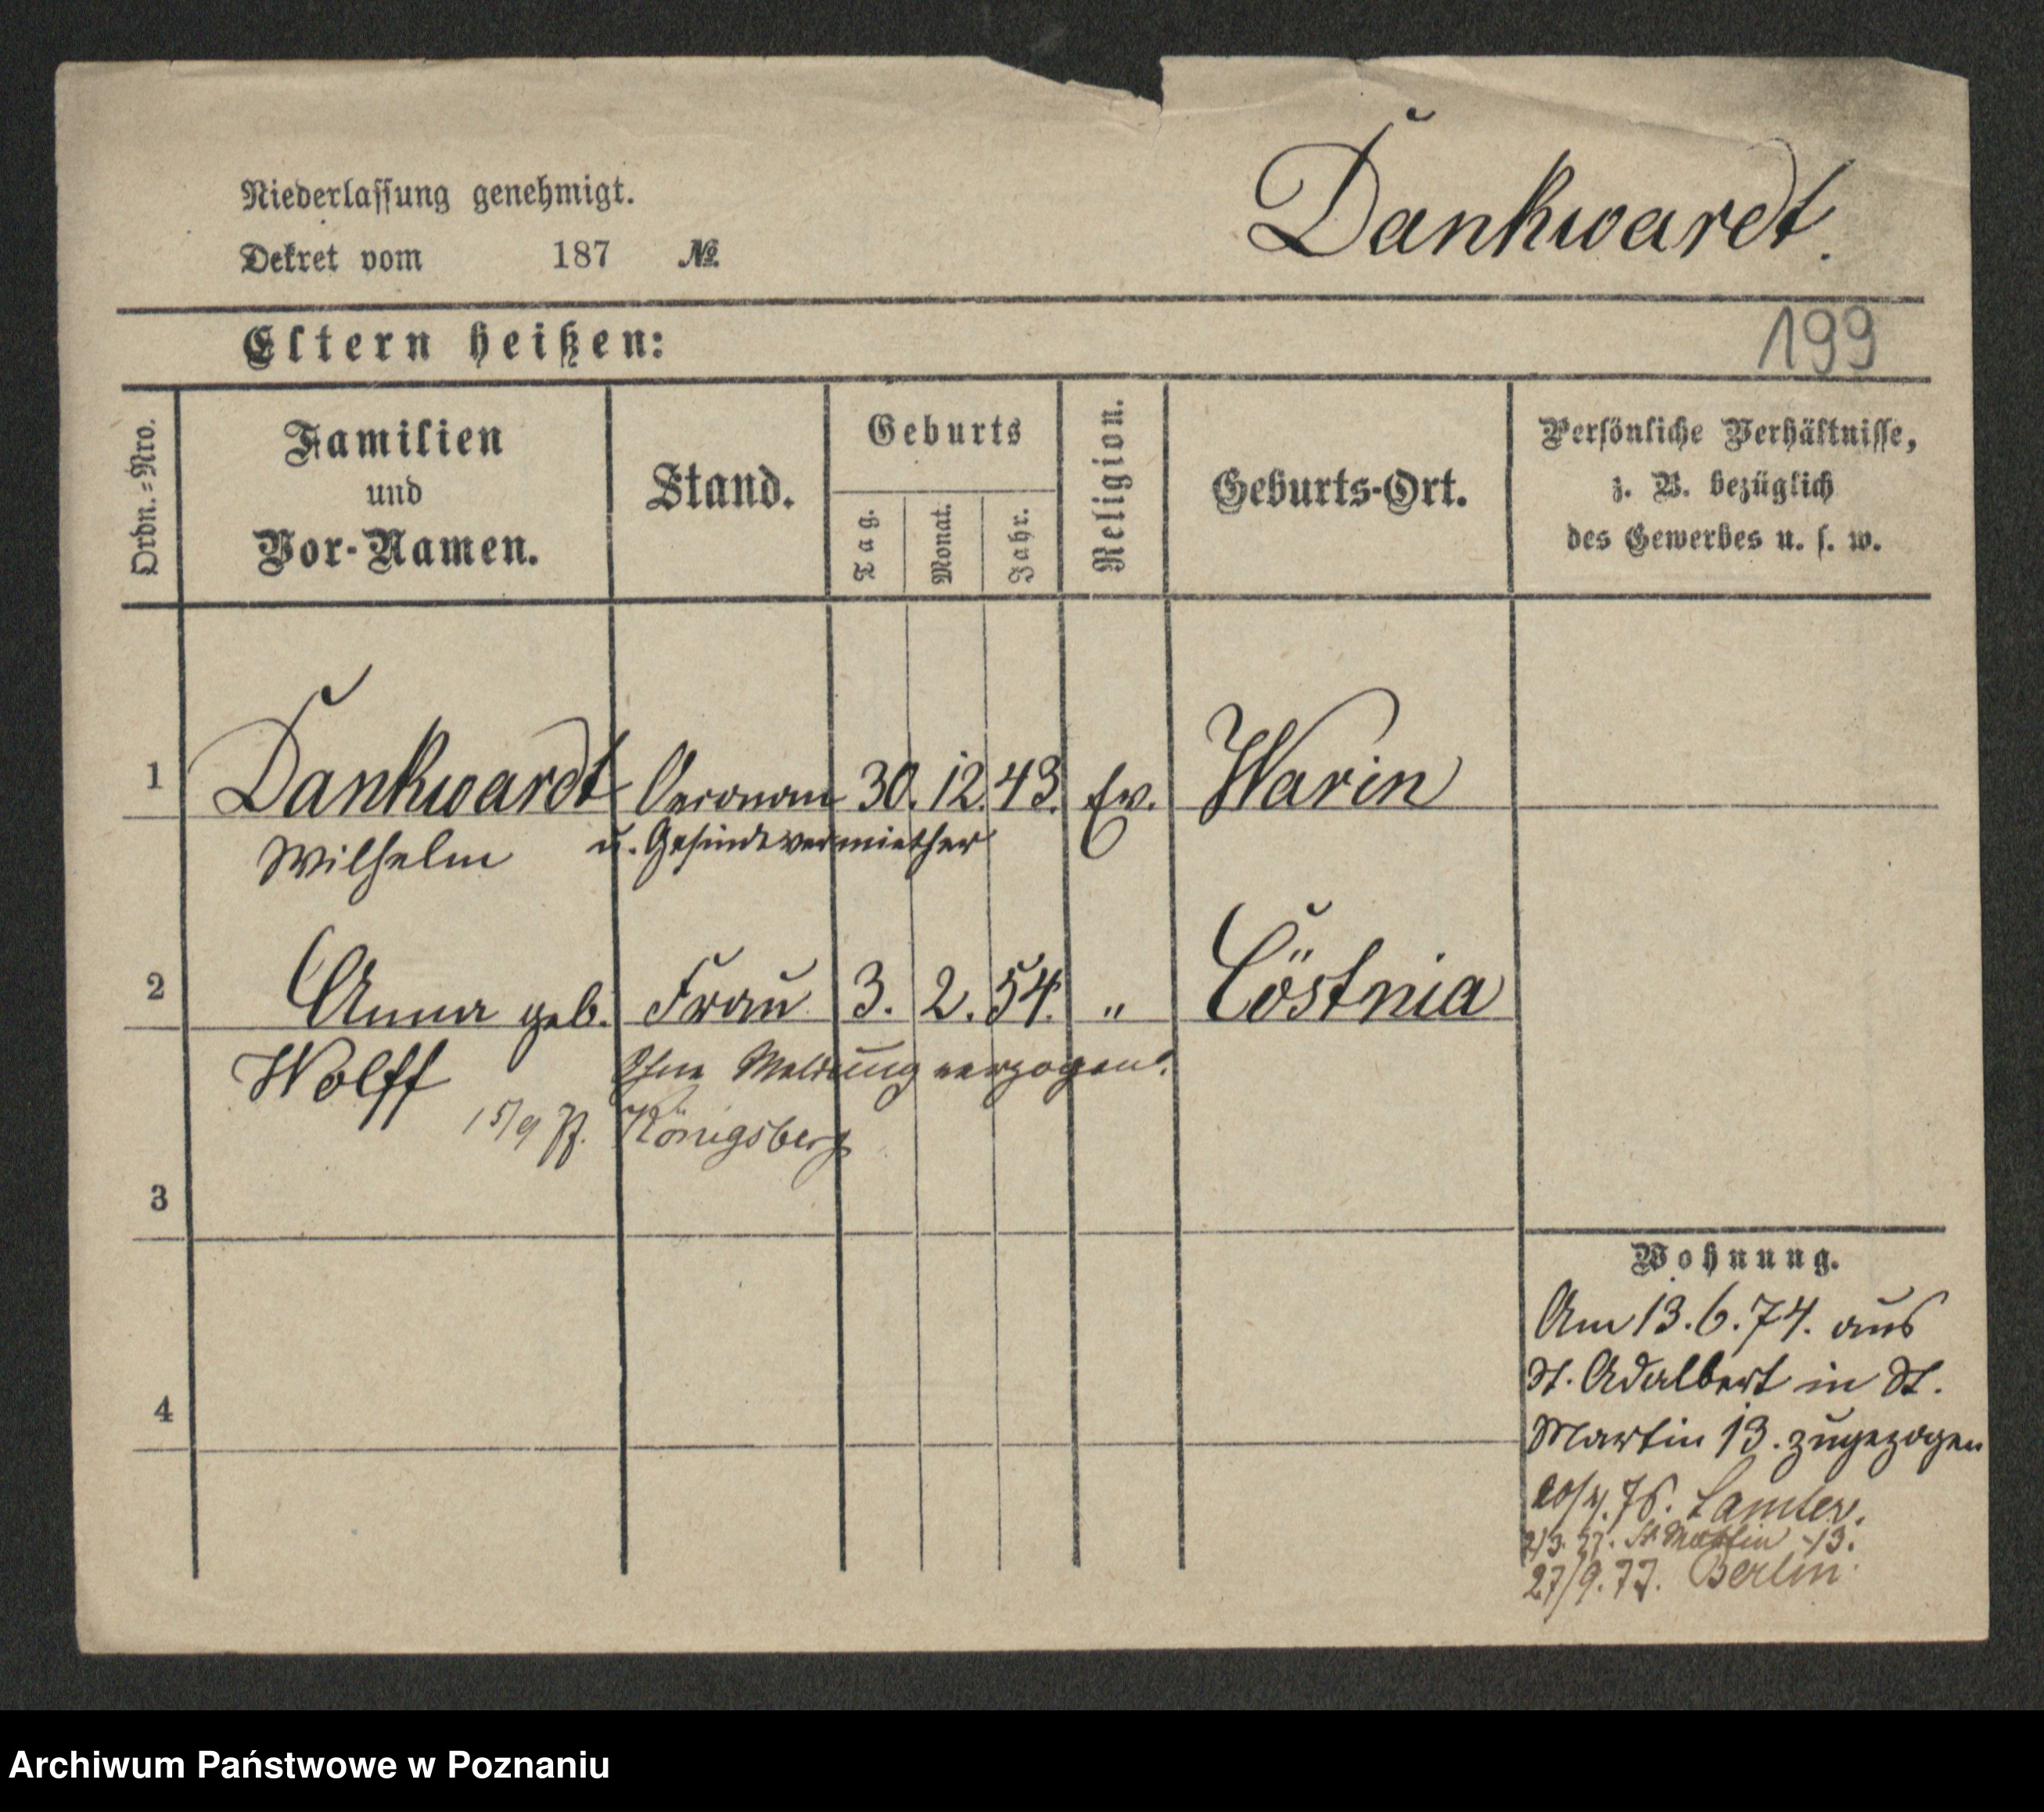 Niederlassung genehmigt.
Dekret vom 187 №
Dankwardt.
Eltern heißen:
199
Ordn.-Nro.
Familien
und
Vor-Namen.
Stand.
Geburts
Tag.
Monat.
Jahr.
Religion.
Geburts-Ort.
Persönliche Verhältnisse,
z. B. bezüglich
des Gewerbes u. s. w.
1 Dankwardt 30. 12. 43. Ev. Warin
Wilhelm u. Gesindevermiether
2 Anna geb. Frau 3. 2. 54. " Cöstnia
Wolff Ohne Meldung verzogen.
15/9 Königsberg
3
4
Wohnung.
Am 13. 6. 74. aus
St. Adalbert in St.
Martin 13. zugezogen
76. Samter.
St Martin 13.
27/9. 77. Berlin
Archiwum Państwowe w Poznaniu